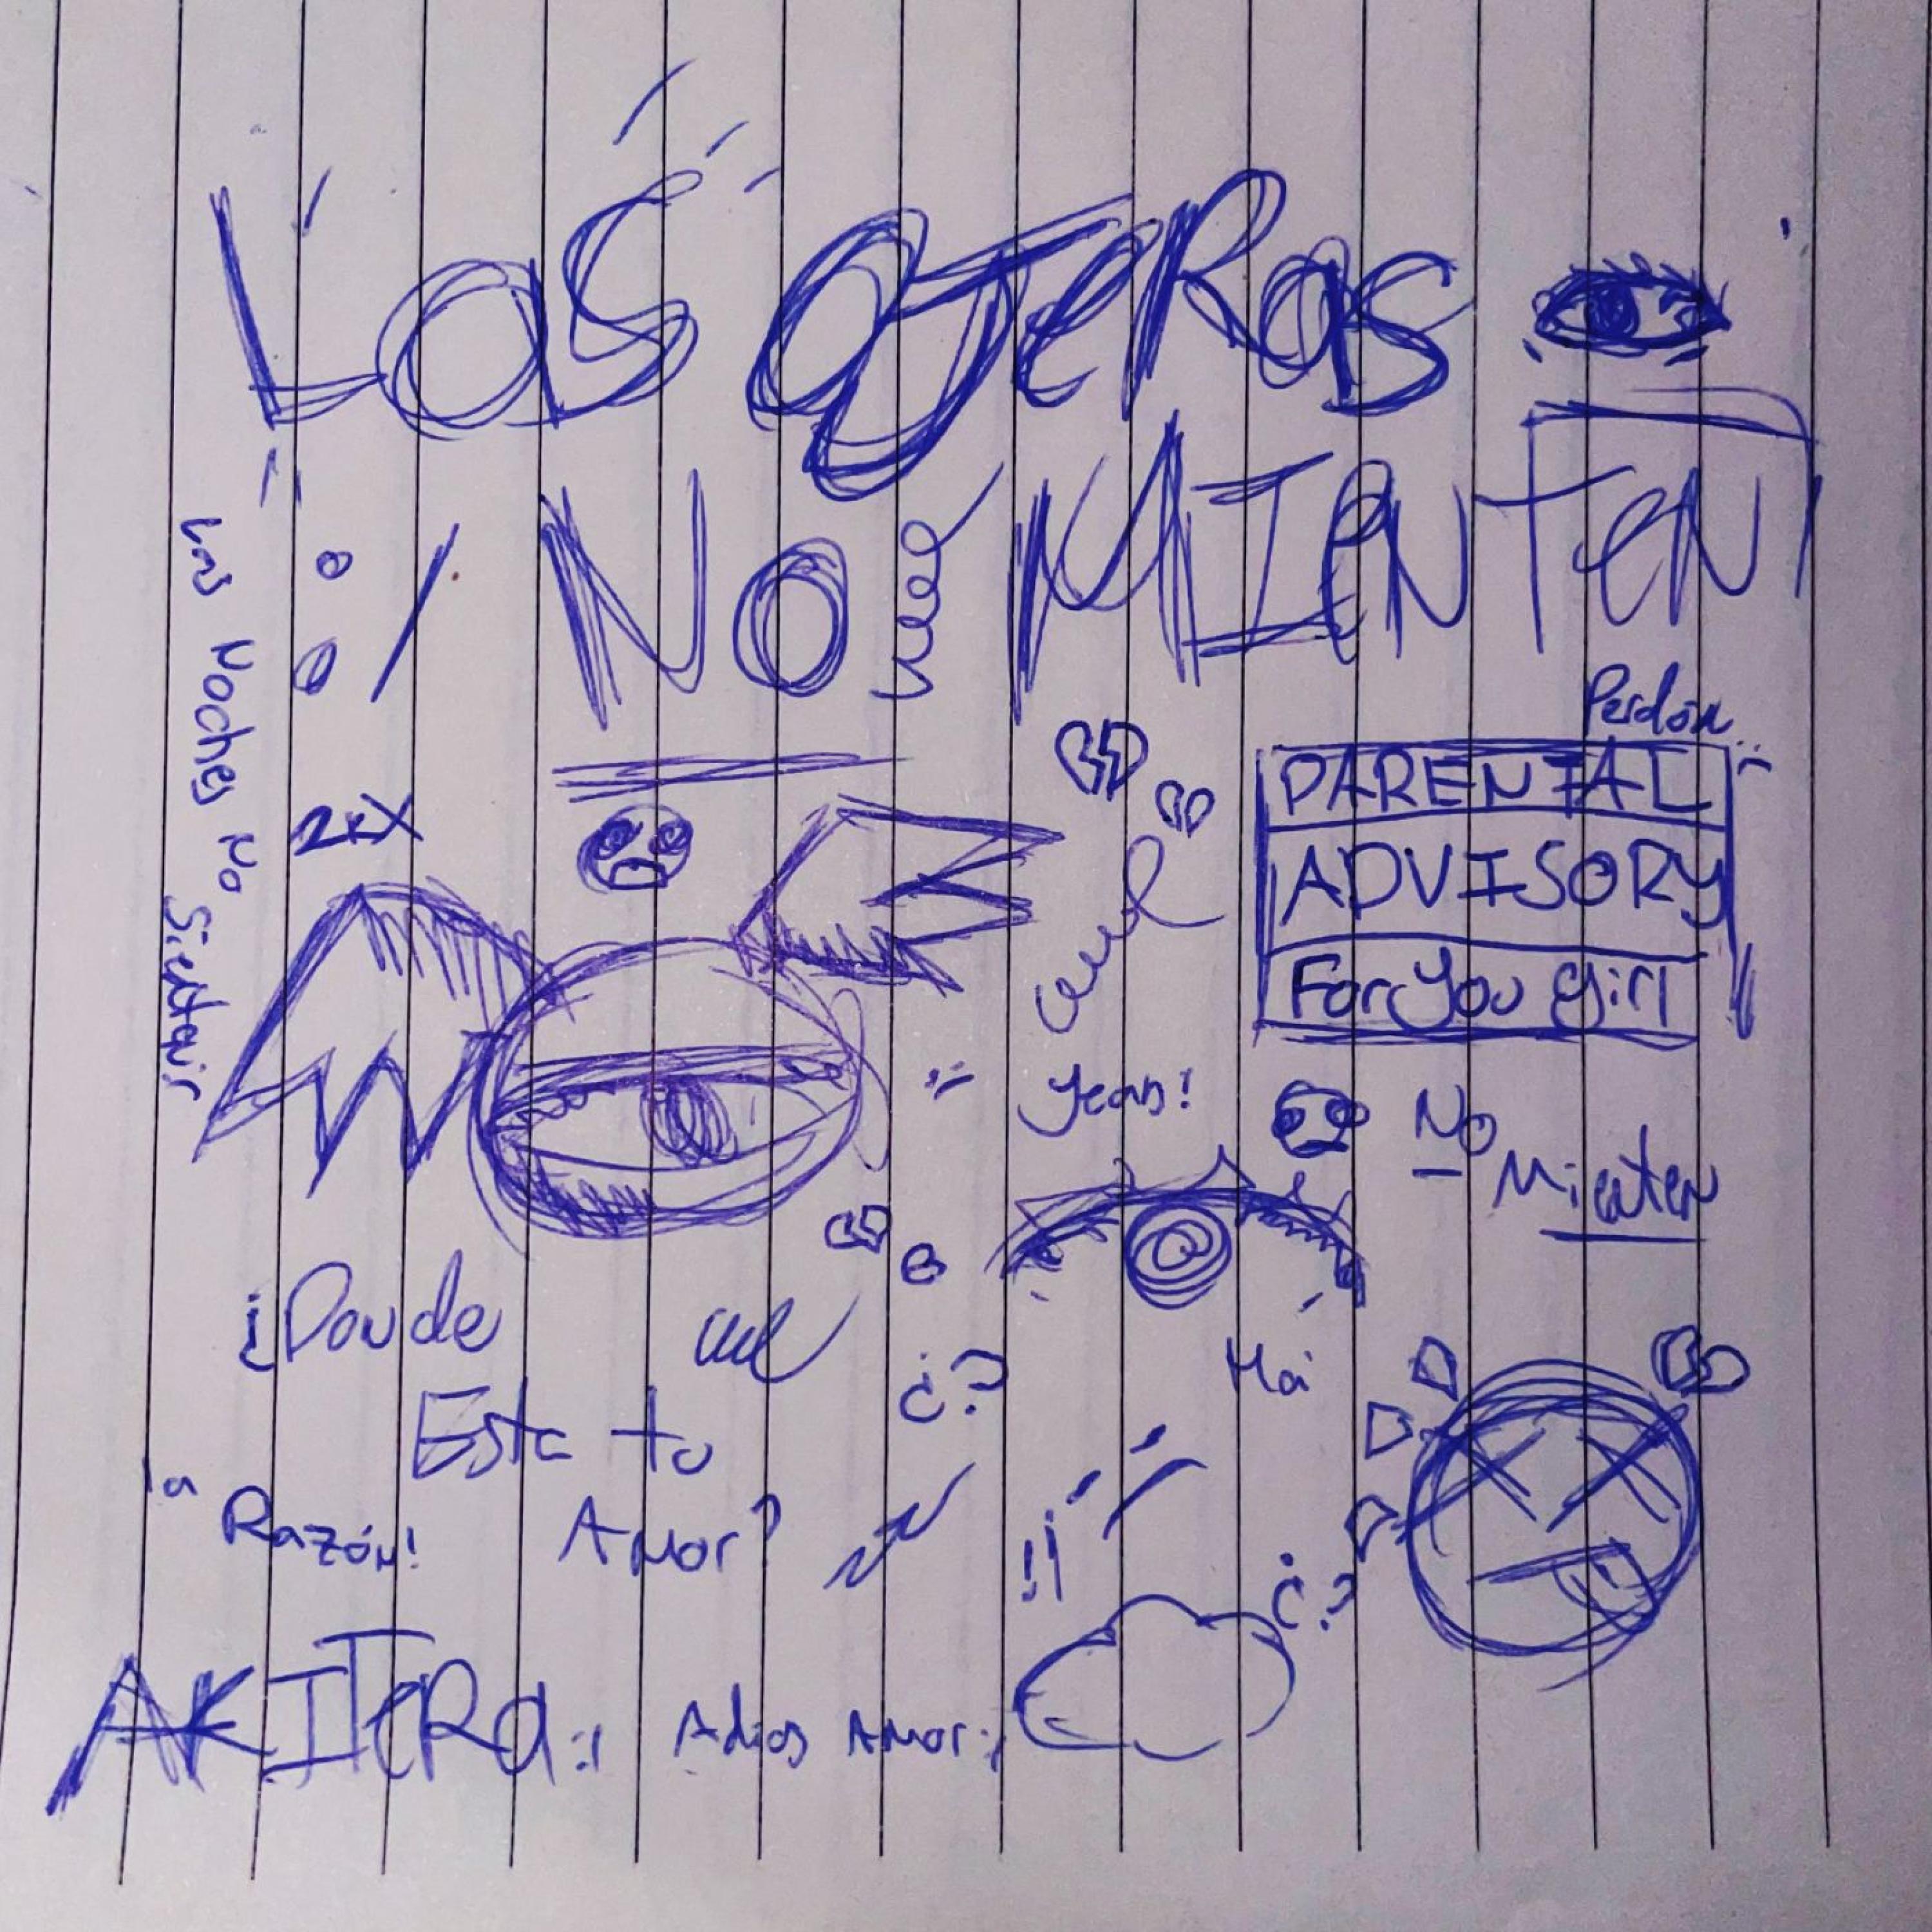 Las OJeRas
No MIENTEN
Las Noches No
Perdón
2X
PARENTAL
ADVISORY
For You girl
No
Mienten
¿Donde
Esta tu
Amor?
¿?
la
Razón!
¿?
AKITeRa :(
Adios Amor :(